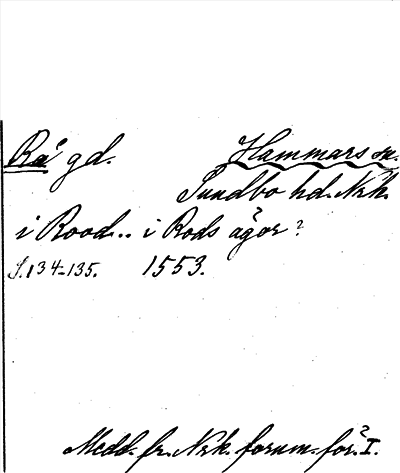 Rå gd. Hammars sn.
Sundbo hd. Nrk.
i Rood.. i Rods ägor?
S. 134-135. 1553.
Medd. fr. Nrk. fornm.-för. I.